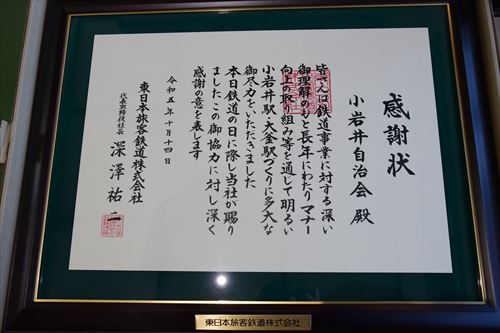 感謝状
小岩井自治会 殿
皆さんは鉄道事業に対する深い
御理解のもと長年にわたりマナー
向上の取り組み等を通じて明るい
小岩井駅・大釜駅づくりに多大な
御尽力をいただきました
本日鉄道の日に際し当社が賜り
ましたこの御協力に対し深く
感謝の意を表します
令和五年十月十四日
東日本旅客鉄道株式会社
代表取締役社長 深澤祐二
東日本旅客鉄道株式会社